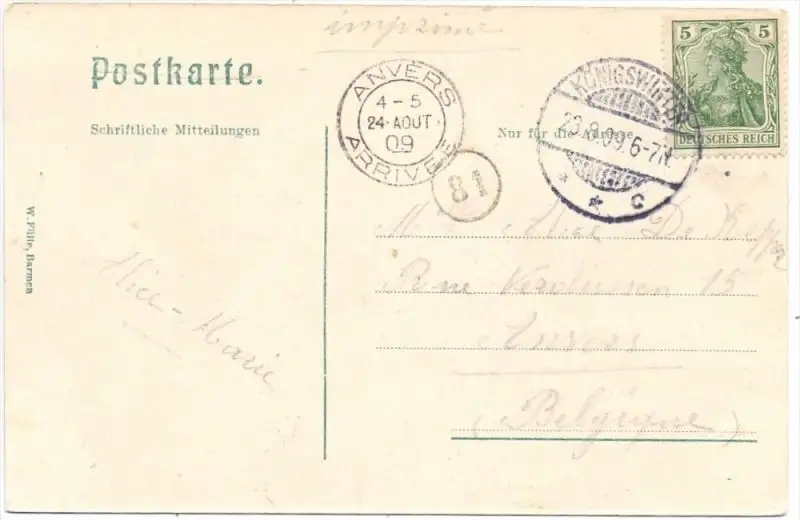 imprimé
Postkarte.
Schriftliche Mitteilungen
Nur für die Adresse
ANVERS
4-5
24·AOUT·
09
ARRIVEE
81
KÖNIGSWINTER
23.8.09.6-7N.
* * c
5 5
DEUTSCHES REICH
W. Fülle, Barmen
Alice-Marie
Alice De
Rue 15
Anvers
(Belgique)